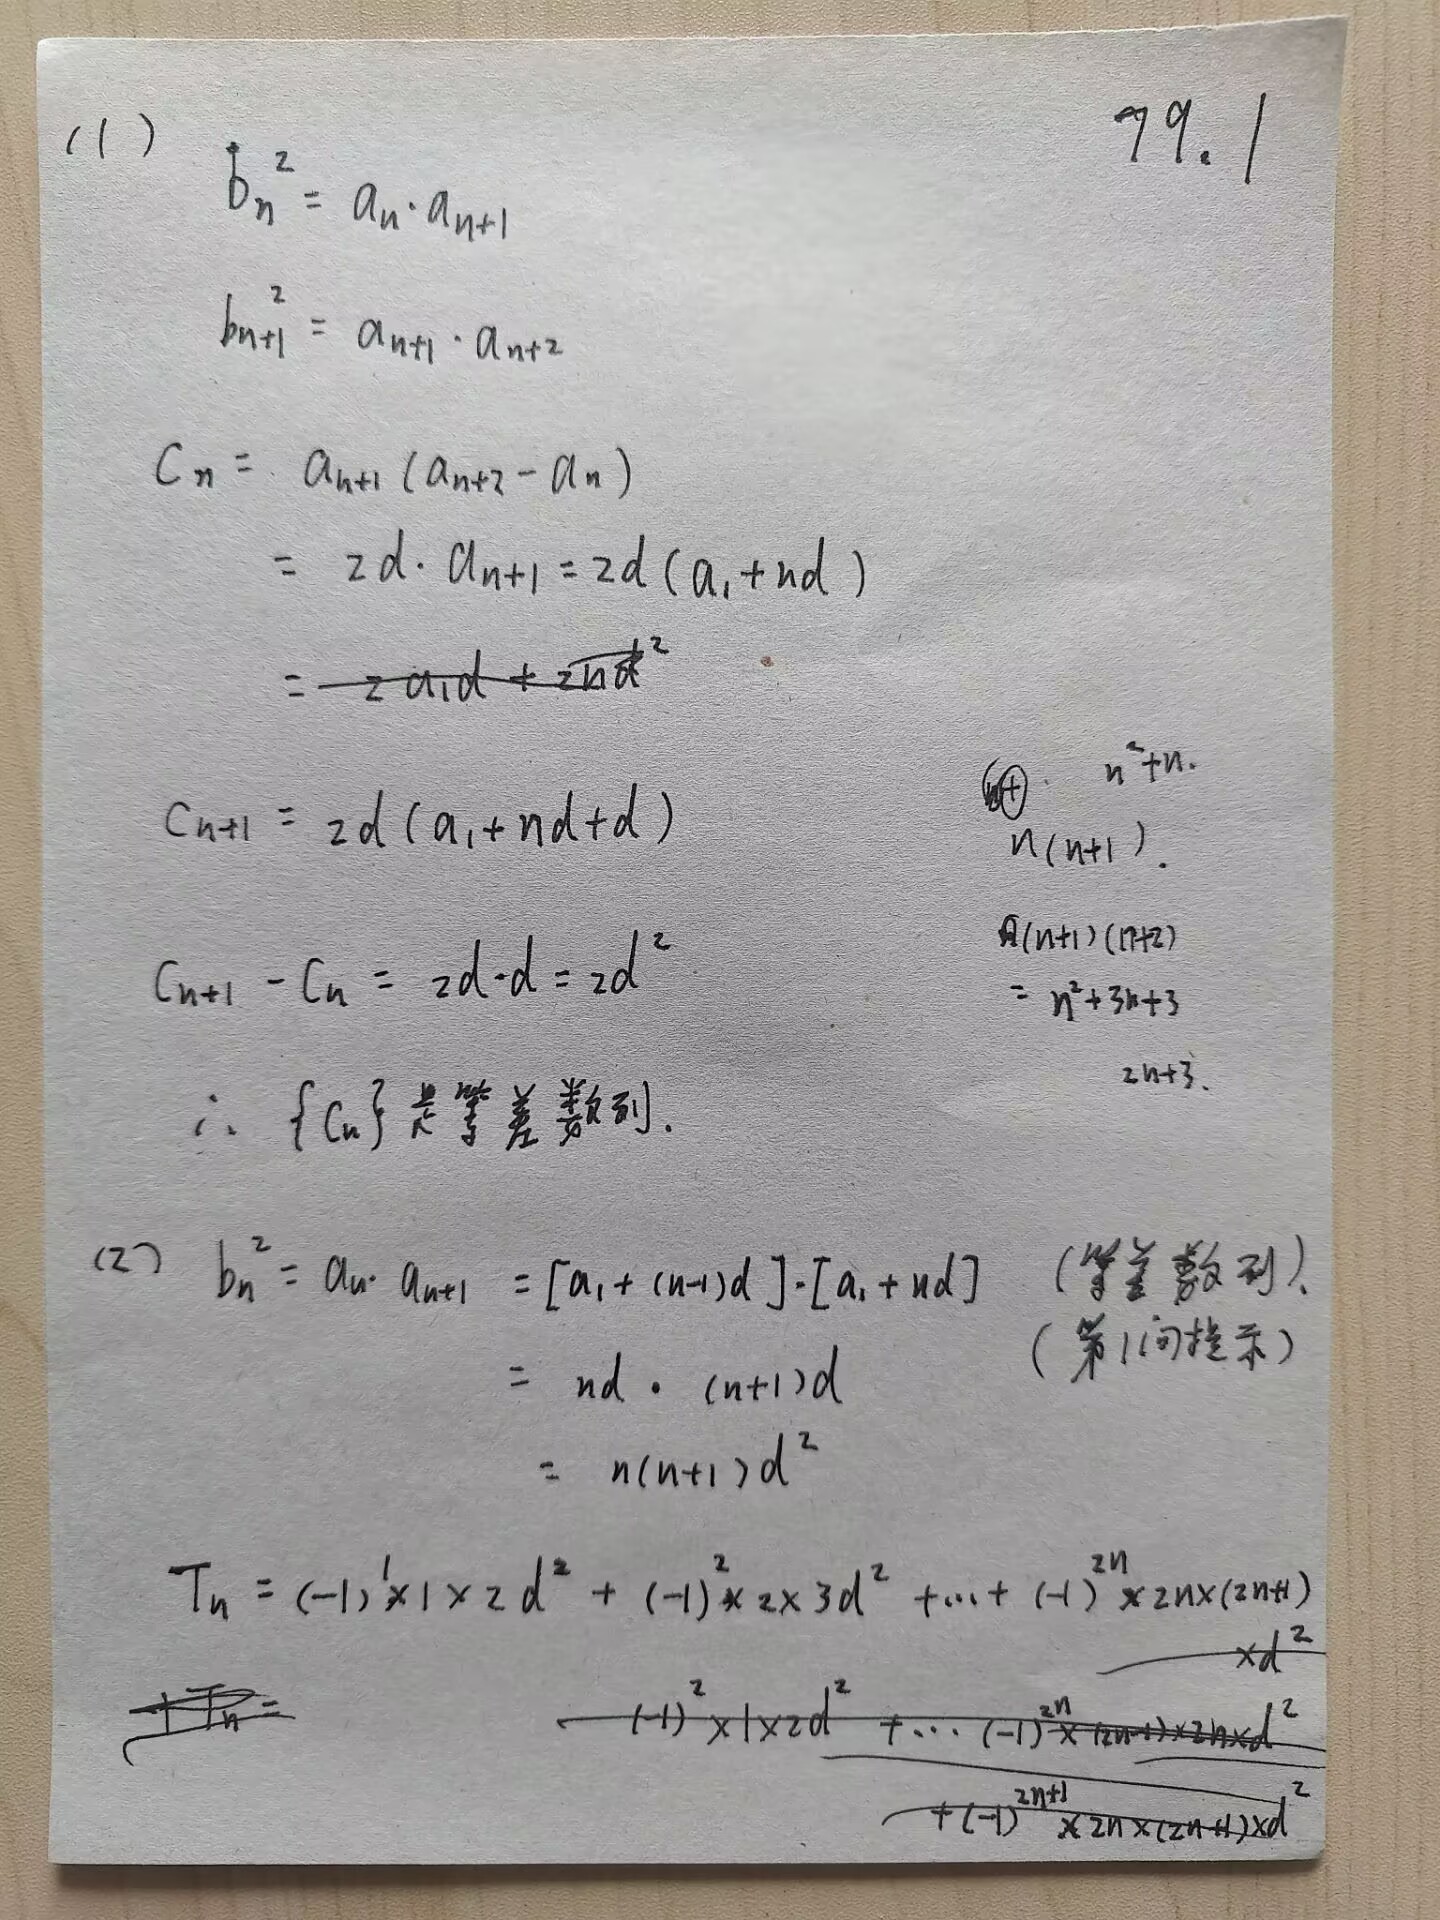 79.1
(1)
bn² = an·an+1
bn+1² = an+1·an+2
Cn = an+1(an+2-an)
= 2d·an+1 = 2d(a1+nd)
= 2a1d + 2nd²
Cn+1 = 2d(a1+nd+d)
n²+n.
n(n+1).
Cn+1 - Cn = 2d·d = 2d²
(n+1)(n+2)
= n²+3n+3
2n+3.
∴ {Cn}是等差数列.
(2) bn² = an·an+1 = [a1+(n-1)d]·[a1+nd] (等差数列).
(第1问提示)
= nd·(n+1)d
= n(n+1)d²
Tn = (-1)¹×1×2d² + (-1)²×2×3d² +...+ (-1)²ⁿ×2n×(2n+1)
×d²
Tn =
(-1)²×1×2d² +... (-1)²ⁿ×(2n-1)×2n×d²
+(-1)²ⁿ⁺¹×2n×(2n+1)×d²